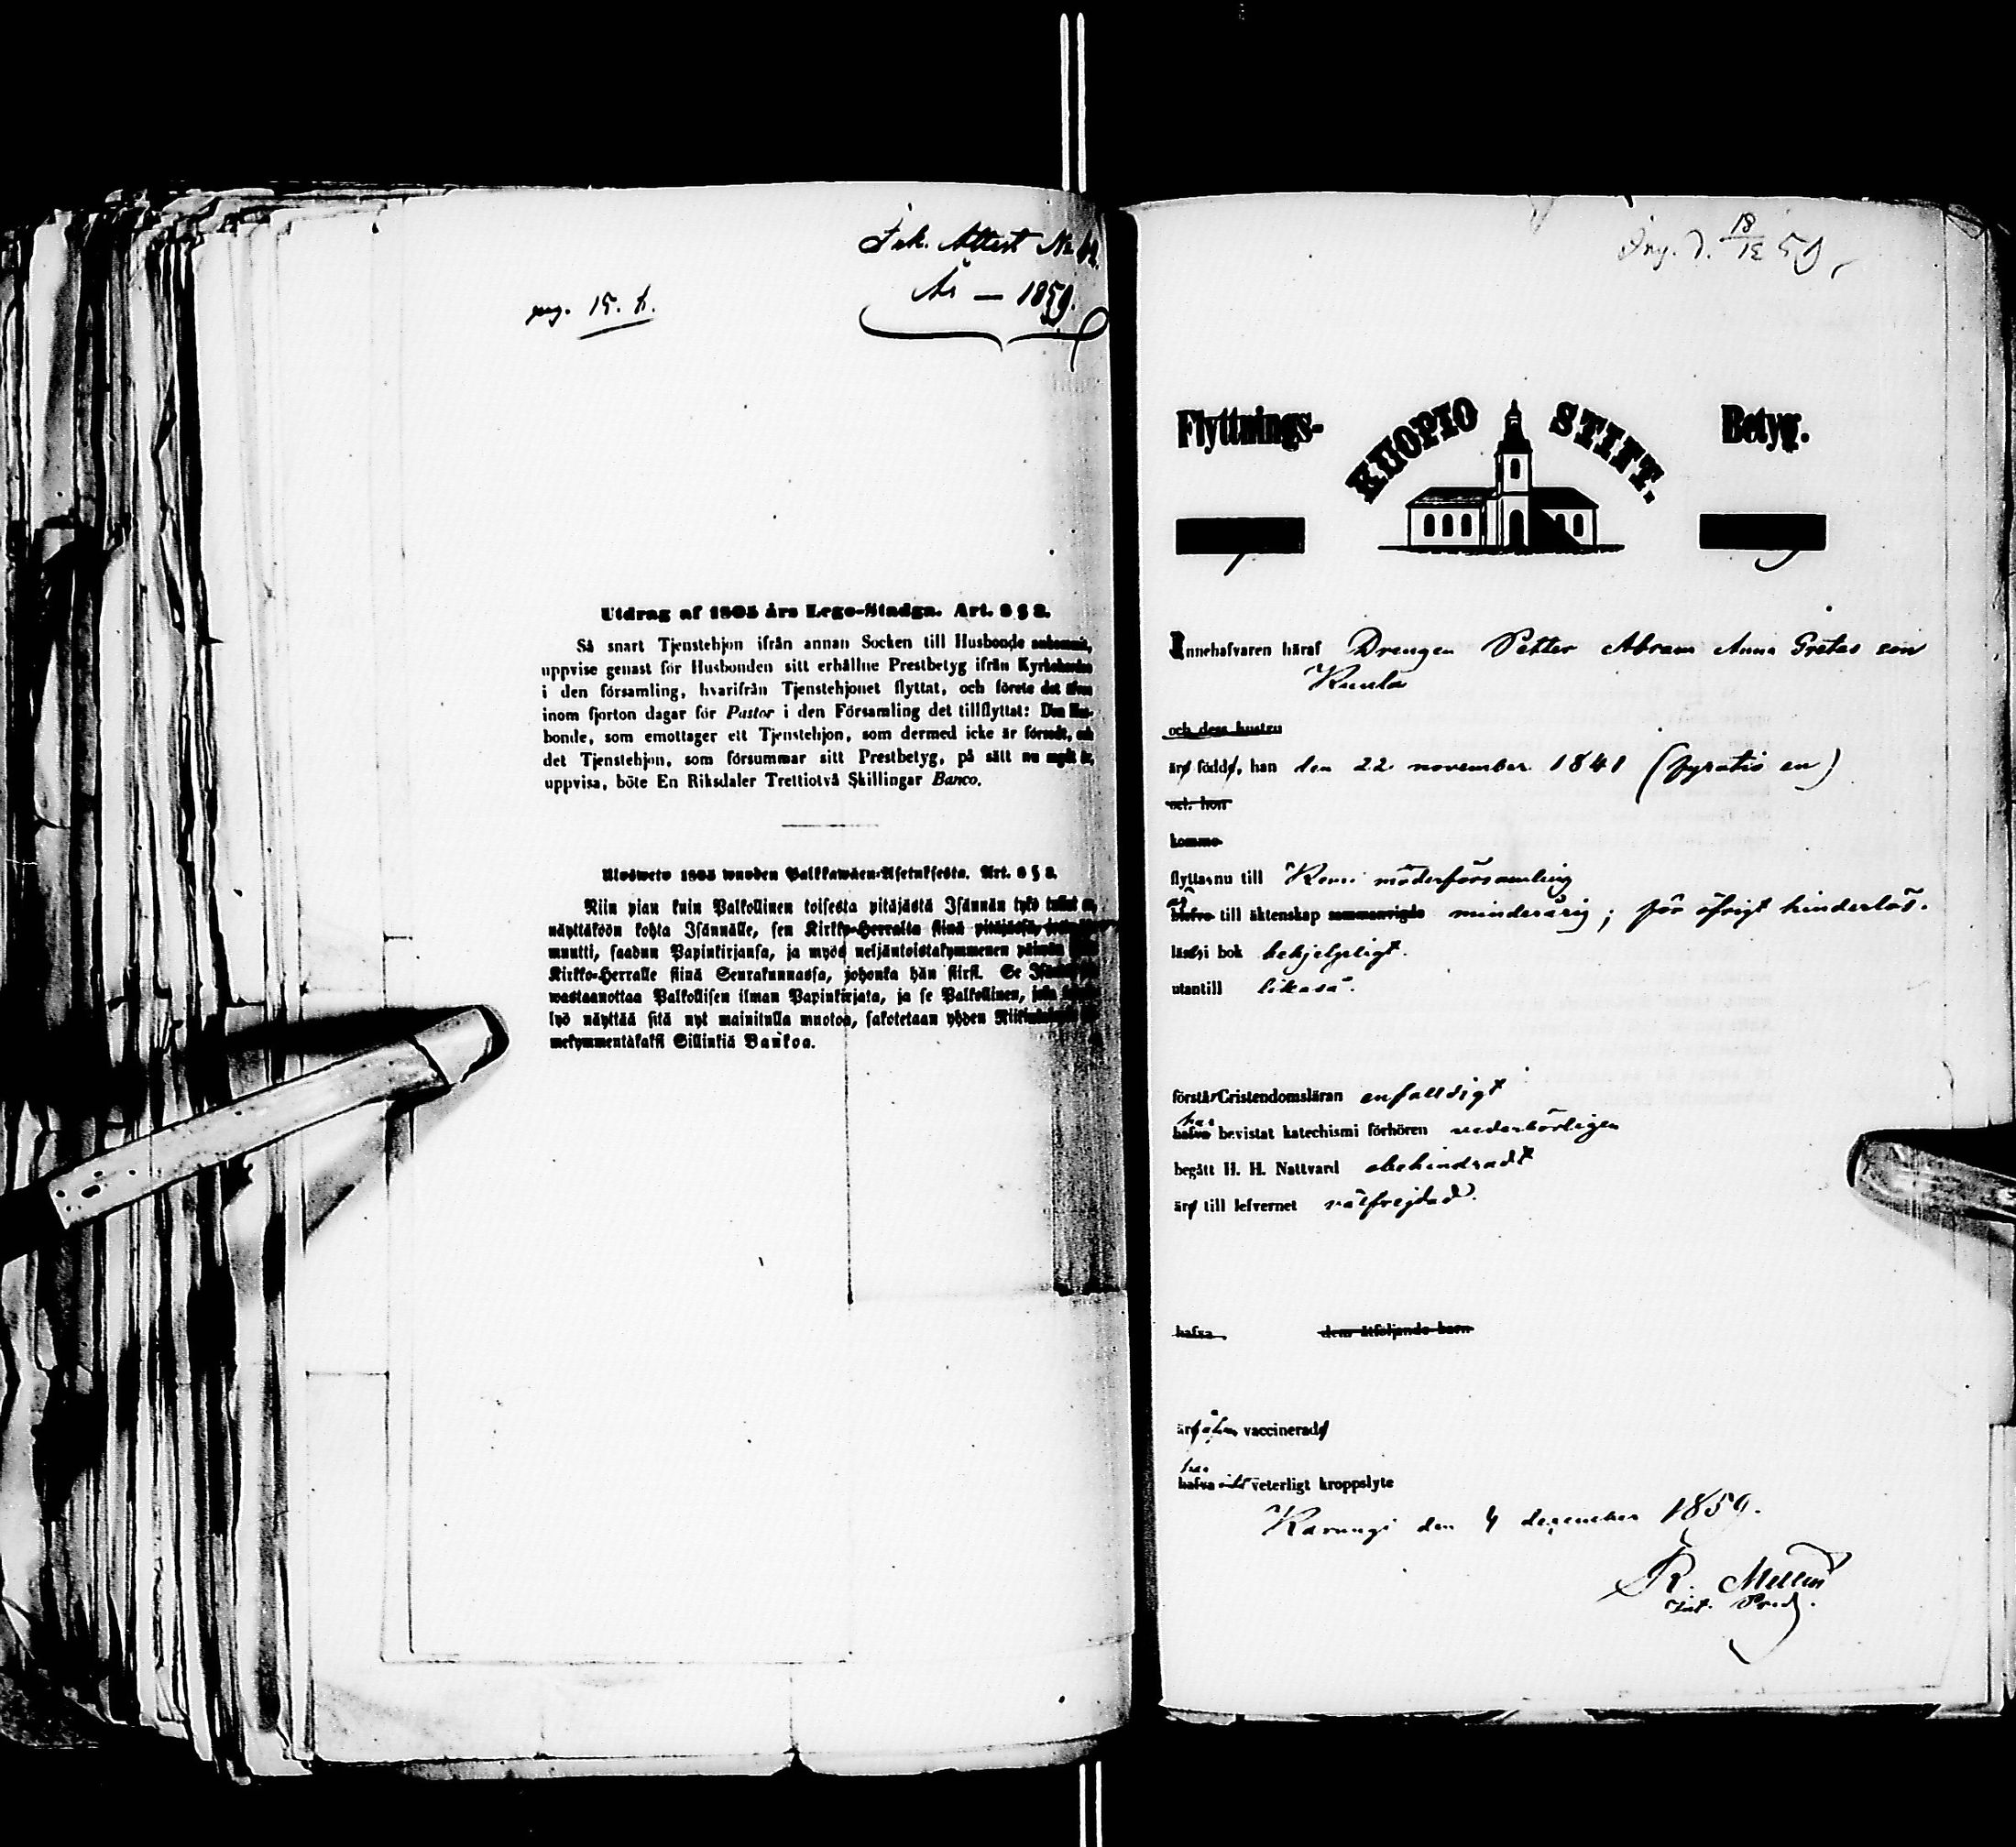 Ink. Attest No 42.
År — 1859.
pag. 15. t.
Utdrag af 1805 års Lego-Stadga. Art. 8 § 2.
Så snart Tjenstehjon ifrån annan Socken till Husbonde ankommit,
uppvise genast för Husbonden sitt erhållne Prestbetyg ifrån Kyrkoherden
i den församling, hvarifrån Tjenstehjonet flyttat, och förete det äfven
inom fjorton dagar för Pastor i den Församling det tillflyttat: Den Hus-
bonde, som emottager ett Tjenstehjon, som dermed icke är försedt, och
det Tjenstehjon, som försummar sitt Prestbetyg, på sätt nu sagdt är,
uppvisa, böte En Riksdaler Trettiotvå Skillingar Banco.
Ulosweto 1805 wuoden Palkkawäen-Asetuksesta. Art. 8 § 2.
Niin pian kuin Palkollinen toisesta pitäjästä Isännän tykö tullut on,
näyttäköön kohta Isännälle, sen Kirkko-Herralta siinä pitäjässä,
muutti, saadun Papinkirjansa, ja myös neljäntoistakymmenen päiwän
Kirkko-Herralle siinä Seurakunnassa, johonka hän siirsi. Se
wastaanottaa Palkollisen ilman Papinkirjata, ja se Palkollinen, joka
lyö näyttää sitä nyt mainitulla muotoa, sakotetaan yhden
mekymmentäkaksi Sillinkiä Bankoa.
Ing. d. 18/12 59,
Flyttnings- KUOPIO STIFT. Betyg.
Innehafvaren häraf Drengen Petter Abram Anna Gretas son
och dess hustru
äro födde, han den 22 november 1841 (fyratio en)
och hon
komme
flytta nu till Kemi möderförsamling
är
till äktenskap sammanvigde minderårig; för öfrigt hinderlös.
läsa i bok behjelpligt.
utantill likaså.
förstår Cristendomsläran enfalldigt
har
hafva bevistat katechismi förhören vederbörligen
begått H. H. Nattvard obehindradt
äro till lefvernet välfrejdad.
hafva dem åtföljande barn
äro vaccinerade
har
hafva veterligt kroppslyte
Karungi den 4 december 1859.